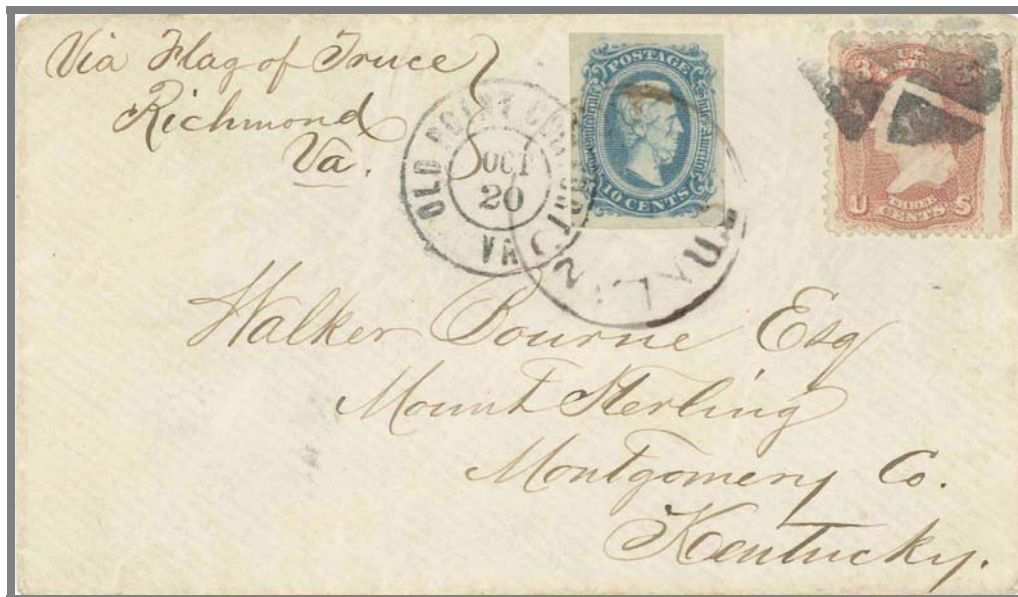 Via Flag of Truce
Richmond
Va.
OLD POINT COMFORT
OCT
20
VA
POSTAGE
10 CENTS
3
U.S.
U CENTS S
Walker Bourne Esq
Mount Sterling
Montgomery Co.
Kentucky.